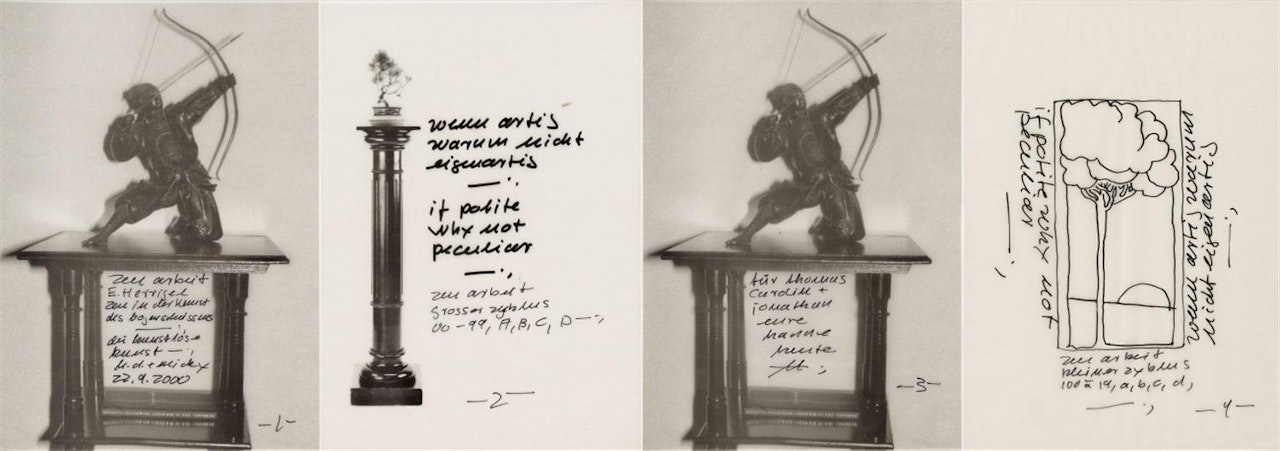 arbeit
E. Herrigel
Zen in der kunst
des bogenschiessens
die kunstlose
kunst —:,
h.d. + micky
22.9.2000
-1-
wenn artig
warum nicht
eigenartig
—:,
if polite
why not
peculiar
—:,
arbeit
grosser zyklus
00-99, A, B, C, D —:,
-2-
für thomas
+
jonathan
eure
hanne
heute
-3-
if polite why not
peculiar
—:,
wenn artig warum
nicht eigenartig
—:,
arbeit
kleiner zyklus
a, b, c, d,
—:,
-4-